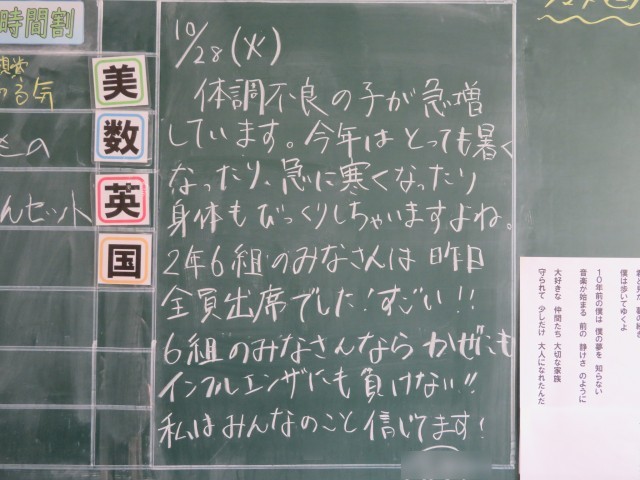 時間割
る気
美
数
英
国
んセット
10/28(火)
体調不良の子が急増
しています。今年はとっても暑く
なったり、急に寒くなったり
身体もびっくりしちゃいますよね。
2年6組のみなさんは昨日
全員出席でした!すごい!!
6組のみなさんなら かぜにも
インフルエンザにも負けない!!
私はみんなのこと信じてます!
僕は歩いてゆくよ
10年前の僕は 僕の夢を 知らない
音楽が始まる 前の 静けさ のように
大好きな 仲間たち 大切な家族
守られて 少しだけ 大人になれたんだ